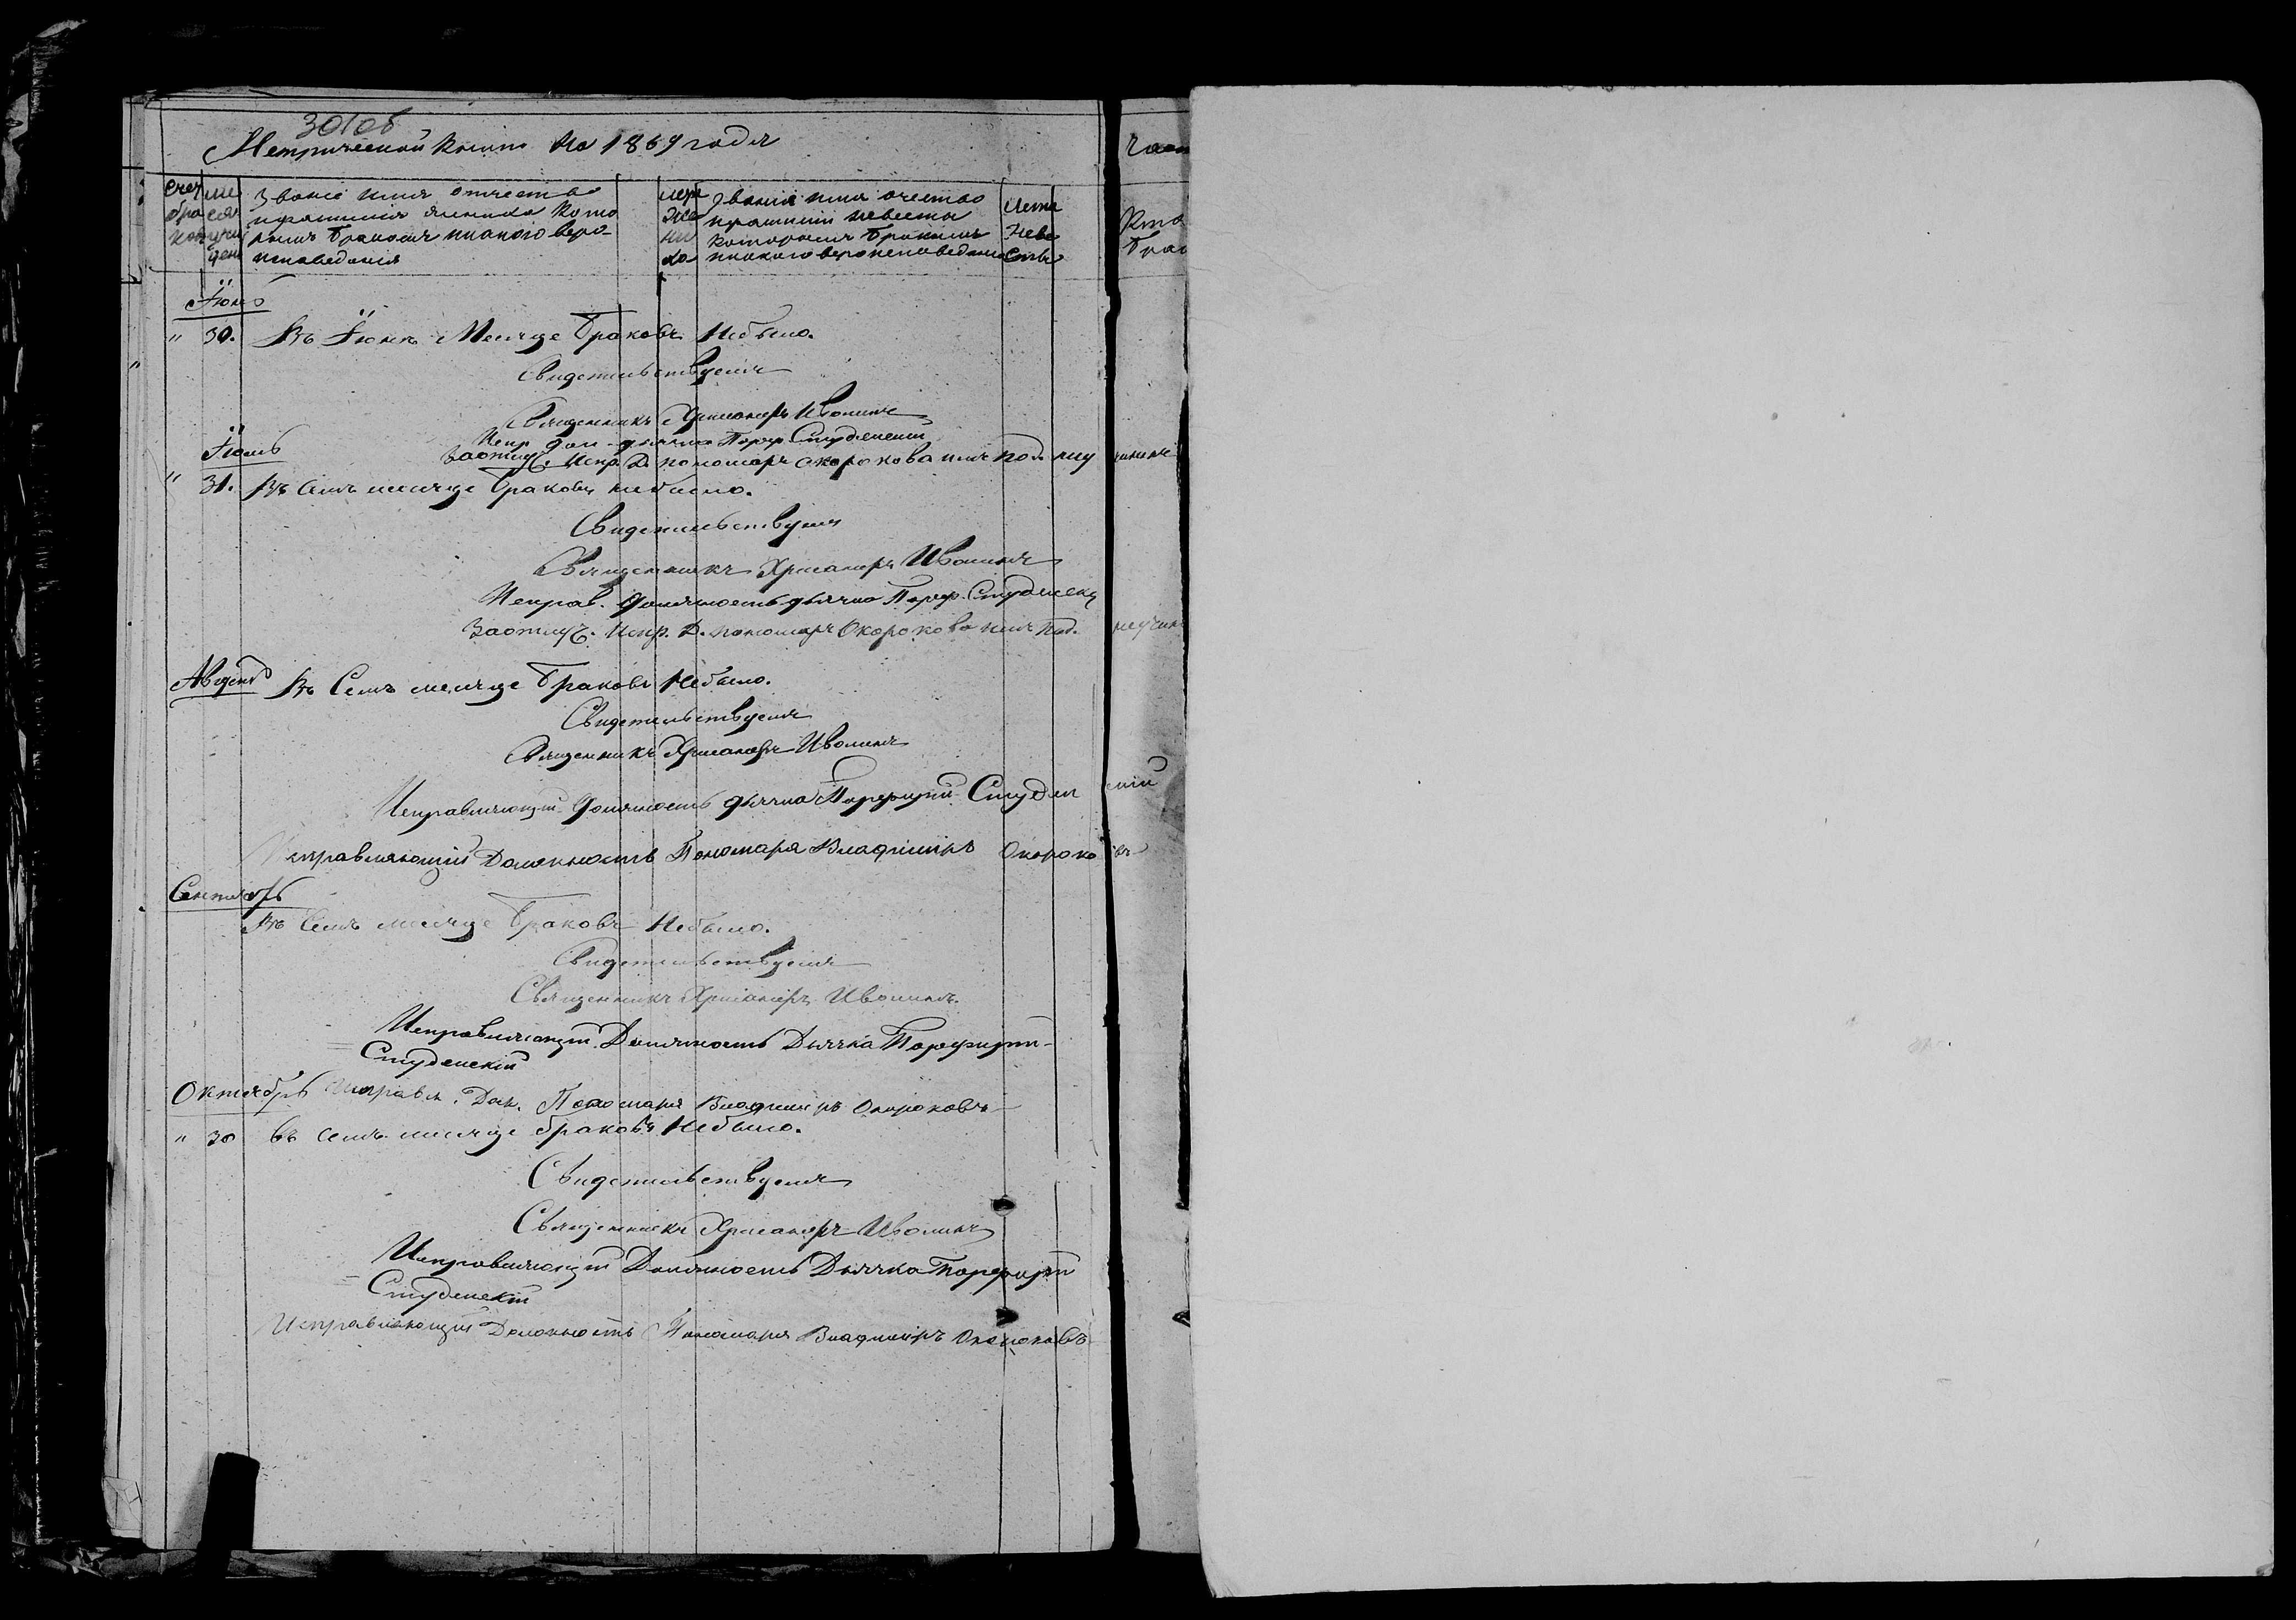 301об
Метрической Книги На 1869 годъ
Счет бра ков
ме сяц и чи день
Званіе имя отчество фамилія жениха кото рымъ бракомъ и какого веро- исповеданія
лета Же ни ха
Званія имя очество фамиліи невесты которымъ бракомъ и какого вероисповеданія
Лета Неве сты
Іюнь
" 30. Въ Іюнѣ Месяце Браковъ Небыло.
Свидетельствуемъ
Священникъ Иволинъ
Испр дол дьячка Порф Студенскій
Заотлуч. Испр. Д. пономаря Окорокова имъ под
Іюль
" 31. Въ семъ месяце Браковъ небыло.
Свидетельствуемъ
Священникъ Иволинъ
Исправ. должность дьячка Порф. Студенск
Заотлуч. Испр. Д. пономаря Окорокова имъ под.
Августъ Въ Семъ месяце Браковъ Небыло.
Свидетельствуемъ
Священникъ Иволинъ
Исправляющій должность дьячка Порфирій Студен скій
Исправляющій Должность Пономаря Владиміръ Окороко въ
Сентябрь
Въ Семъ месяце Браковъ Небыло.
Свидетельствуемъ
Священникъ Иволинъ.
Исправляющій Должность Дьячка Порфирій
Студенскій
Октябрь Исправл. Дол. Пономаря Владиміръ Окороковъ
" 30 въ семъ месяце браковъ Небыло.
Свидетельствуемъ
Священникъ Иволинъ
Исправляющій Должность Дьячка Порфирій
Студенскій
Исправляющій Должность Пономаря Владиміръ Окороковъ